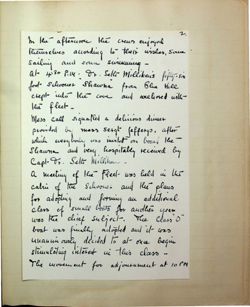 2.
In the afternoon the crews enjoyed
themselves according to their wishes, some
sailing and some swimming -
At 4:30 P.M. Dr. Seth Milliken's fifty-six
foot schooner Shawna from Blue Hill
crept into the cove and anchored with
the fleet -
Mess call signalled a delicious dinner
provided by mess sergt Jeffreys, after
which everybody was invited on board the
Shawna and very hospitably received by
Capt. Dr. Seth Milliken -
A meeting of the Fleet was held in the
cabin of the schooner and the plans
for adopting and forming an additional
class of small boats for another year
was the chief subject. The Class "O"
boat was finally adopted and it was
unanimously decided to at once begin
stimulating interest in this class -
The movement for adjournment at 10 P.M.